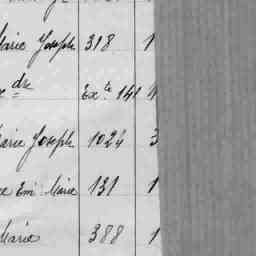 Marie Joseph 318 1
dre Exte 141 1
Marie Joseph 1024 3
ce Em. Marie 131 1
Marie 388 1